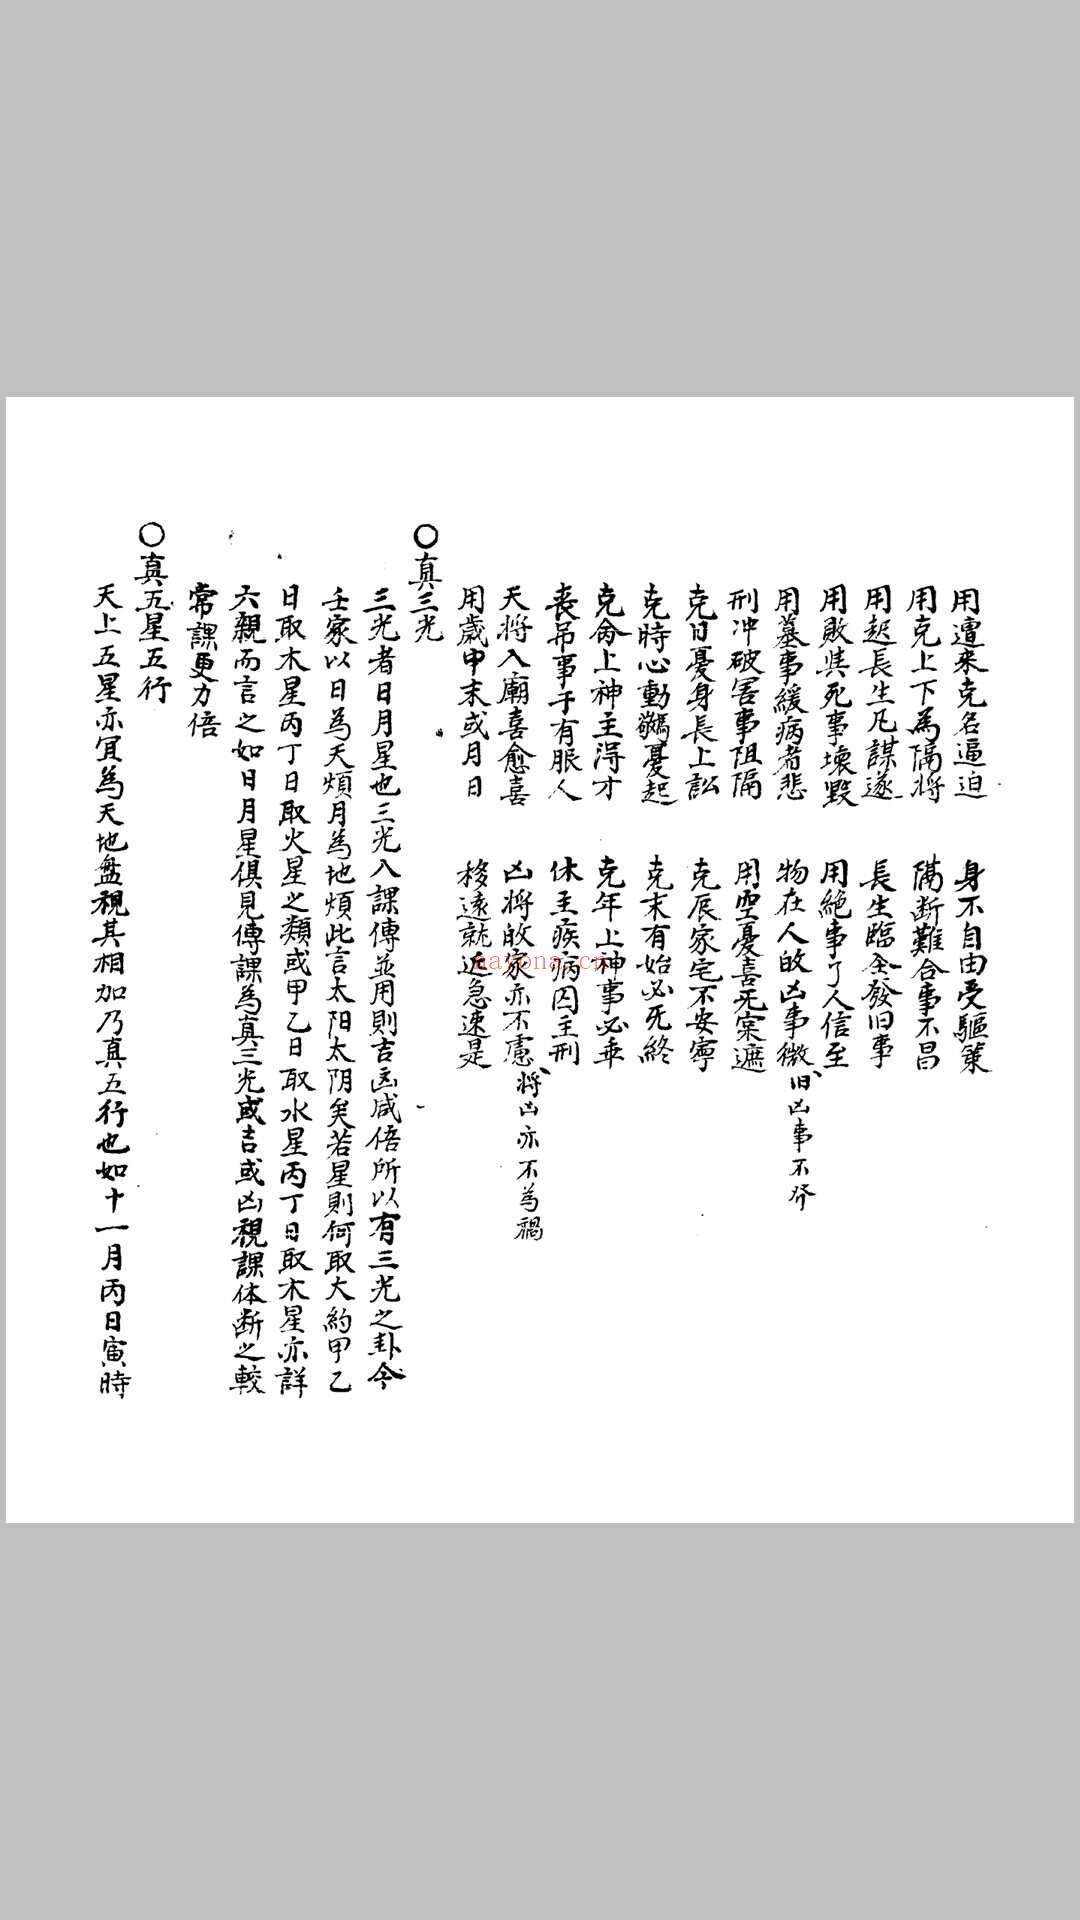 用遭来克名逼迫　身不自由受驅策
用克上下為隔將　隔断難合事不昌
用起長生凡謀遂　長生臨全發旧事
用敗與死事壊毀　用絶事了人信至
用墓事緩病者悲　物在人的凶事微旧凶事不
刑冲破害事阻隔　用空憂喜无宲遮
克日憂身長上訟　克辰家宅不安寧
克時心動驚憂起　克末有始必无終
克命上神主淂才　克年上神事必乖
喪吊事于有服人　休主疾病囚主刑
天将入廟喜愈喜　凶将的家亦不慮将凶亦不為禍
用歲中末或月日　移遠就近急速是
〇真三光
三光者日月星也三光入課傳並用則吉凶咸倍所以有三光之卦今
壬家以日為天煩月為地煩此言太阳太阴矣若星則何取大約甲乙
日取木星丙丁日取火星之類或甲乙日取水星丙丁日取木星亦詳
六親而言之如日月星俱見傳課為真三光或吉或凶視課体断之較
常課更力倍
〇真五星五行
天上五星亦宜為天地盤視其相加乃真五行也如十一月丙日寅時
nayona.cn